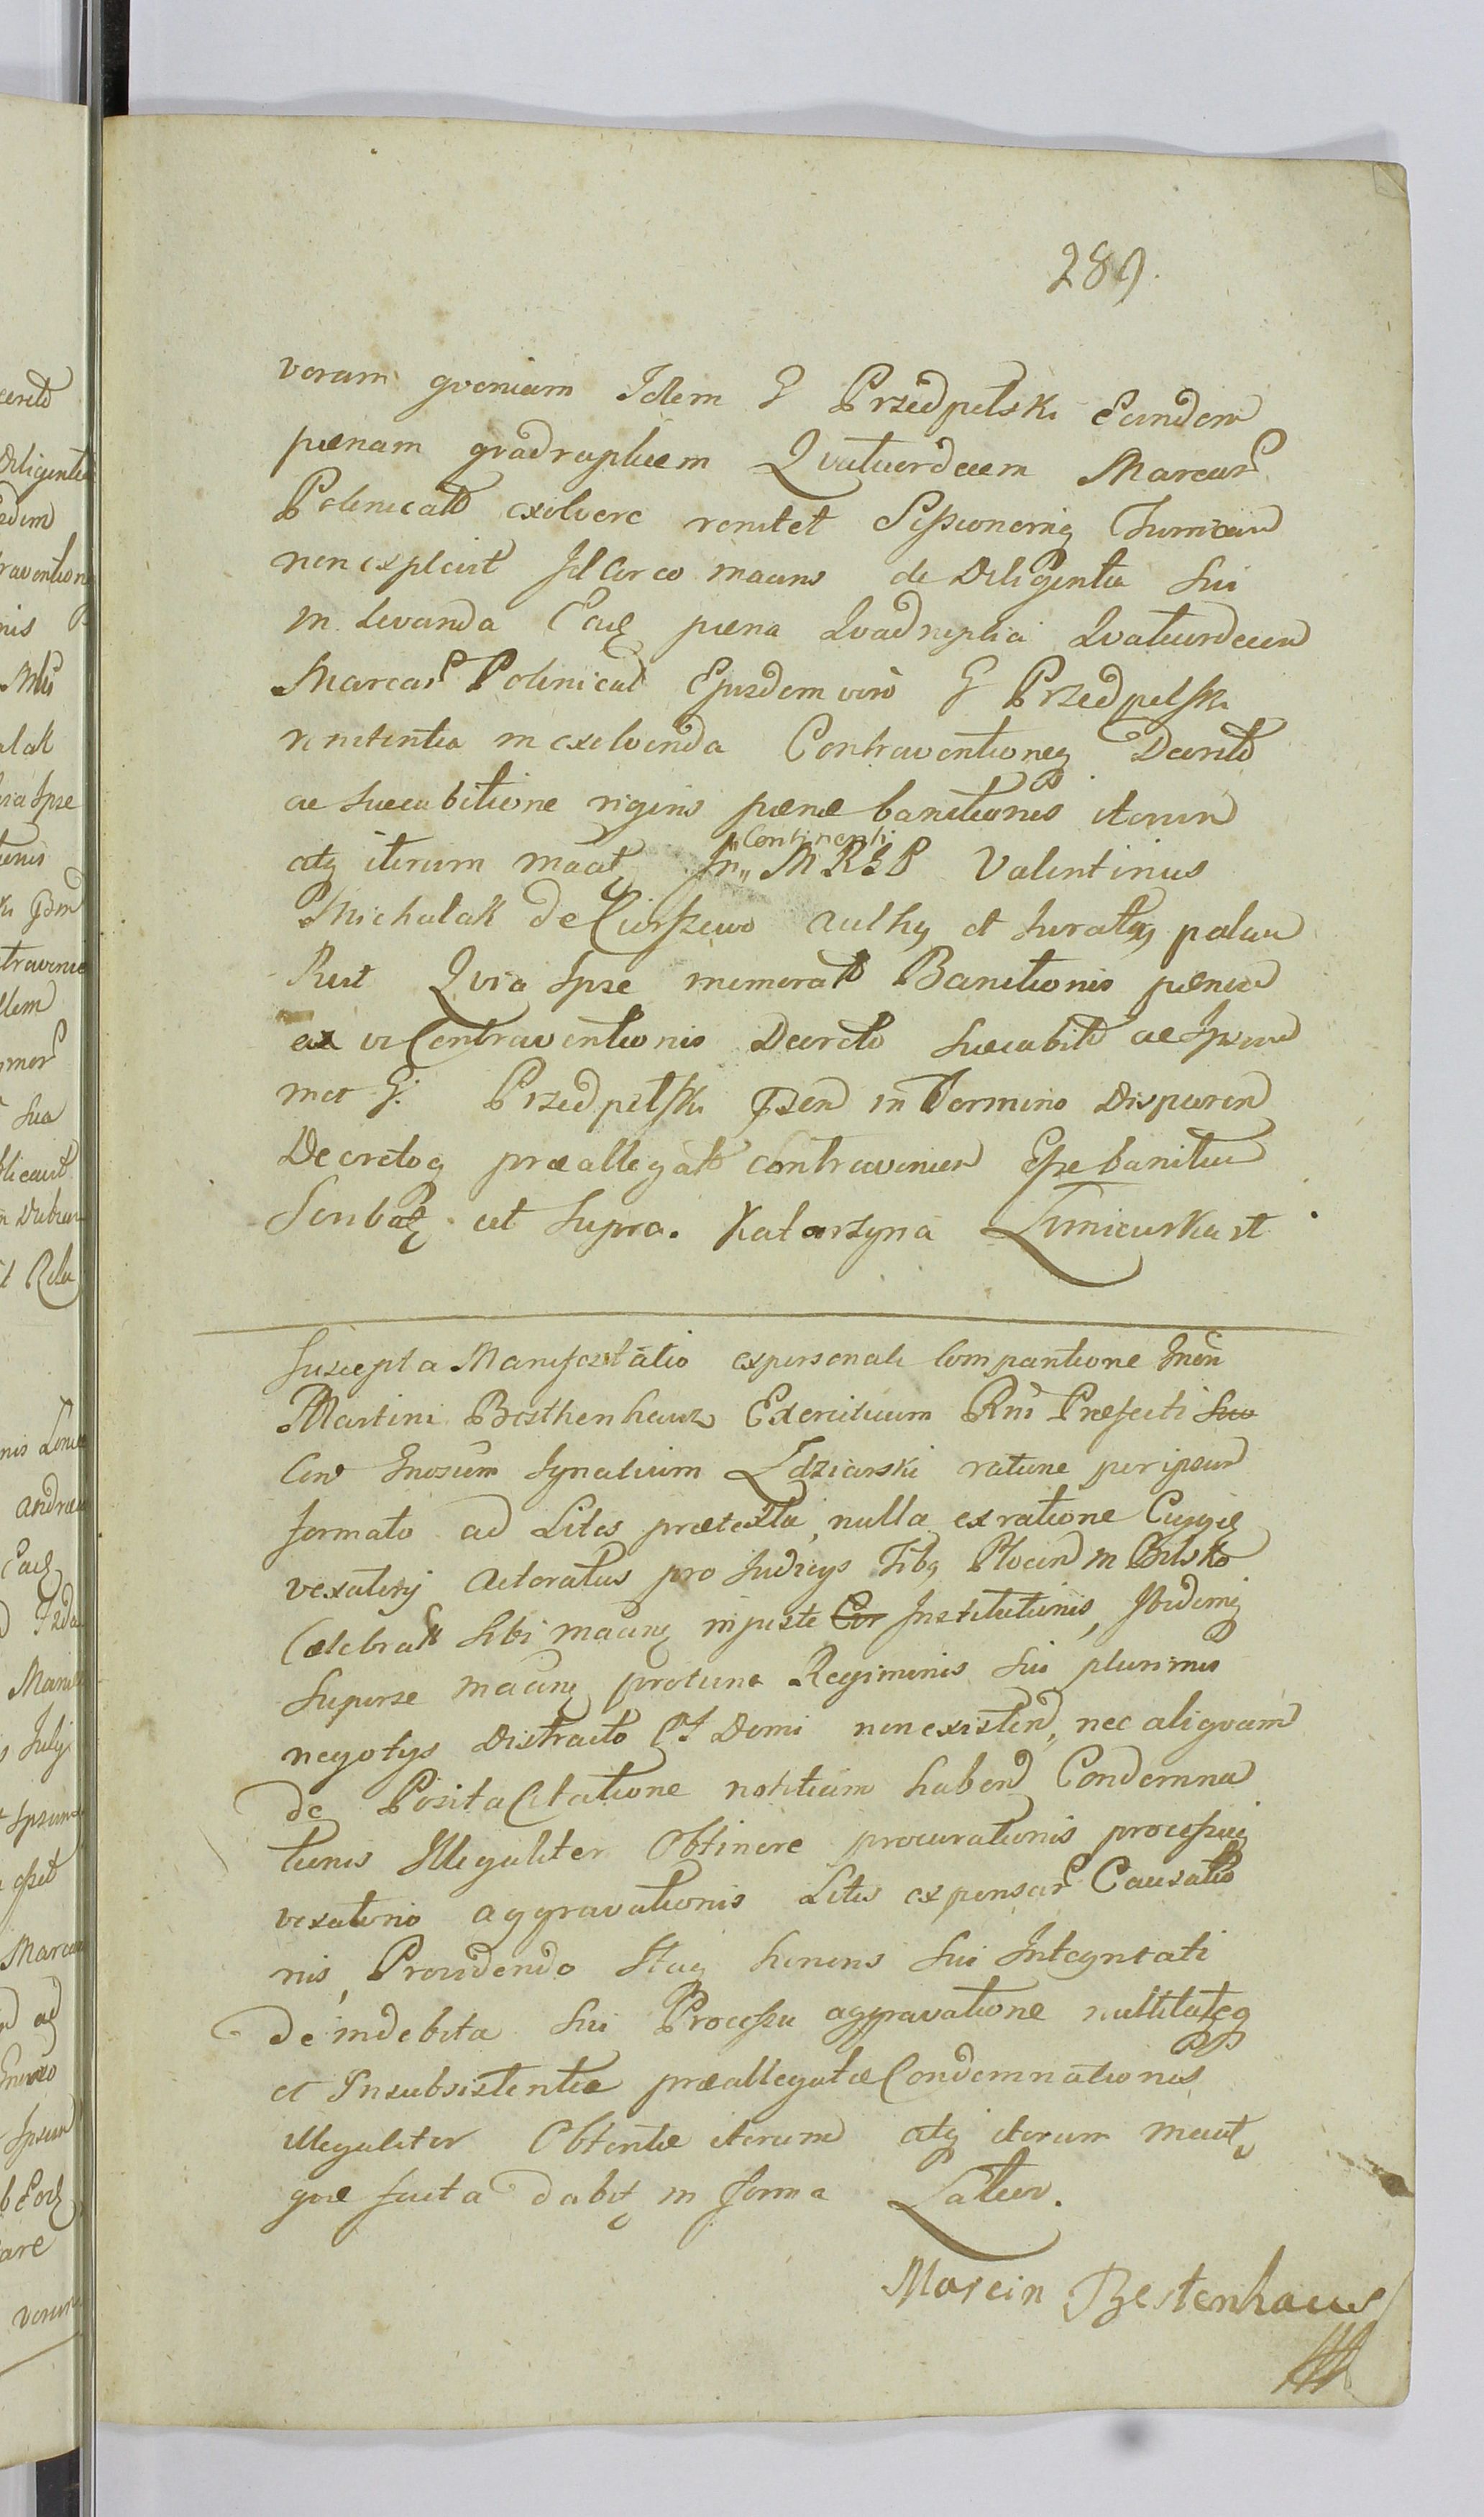 289.
veram qvoniam Idem G Przedpełski Eandem
pænam qvadruplicem Qvatuordecem Marcar
Polonical exolvere renitet
non explevit Id Circo maans de Diligentia sui
in levanda Eadę pæna Qvadruplia Qvatuordecem
Marcar Polonical Ejusdem vero G Przedpełski
renitentia in exolvenda Contraventioneq Decreto
ac succubitione rigoris pænæ banitionis iterum
atq iterum maatę In,, Continenti MRGP Valentinus
Michalak de Ciorszewo authq et Juratq palam
Rcit Qvia Ipse memorato Banitionis pænam
ex vi Contraventionis Decreto succubito ac Ipsum
met G. Przedpełski in Termino Disparen
Decretoq præallegato contravenien Esse banitum
Scribae ut supra. Katarzyna
Suscepta Manifestatio ex personali Comparitione
Martini Besthenhaus Exercituum Præfecti Suo
Con Gnosum Ignatium Zdziarski ratione per ipsum
formato ad Lites prætextu, nulla ex ratione
vexatorij Actoratus pro Judicijs Plocen in Bilsko
Celebratt sibi maanę injuste Cor Institutionis, Ibidemq
super se maanę protunc Regiminis sui plurimis
negotijs Distracto Et Domi non existen, nec aliqvam
de Posita Citatione notitiam haben Condemna
tionis Illegaliter Obtinere procurationis processuq
vexatorio aggravationis Litis expensar Causatio
nis, Providendo Itaq honoris sui Integritati
de indebita sui Processu aggravatione nullitateq
et Insubsistentia præallegatæ Condemnationis
illegaliter Obtentæ iterum atq iterum maatę
qvæ facta dabitę in forma Latiori.
Marcin Bestenhaus